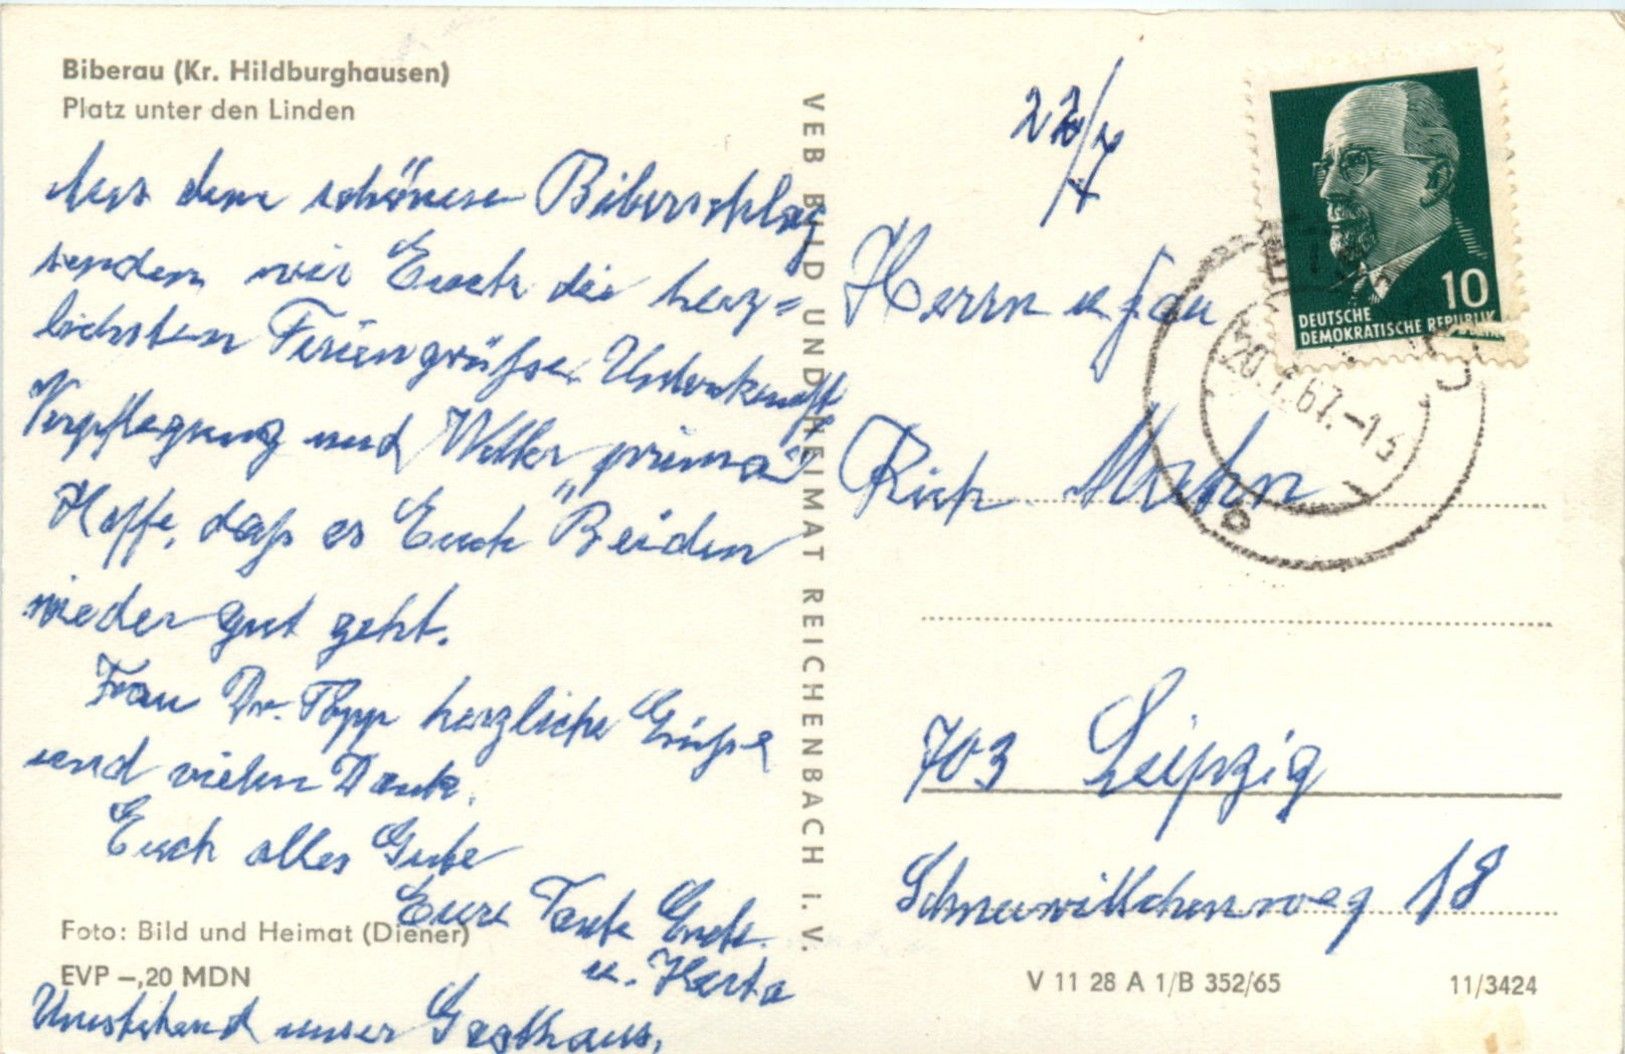 Biberau (Kr. Hildburghausen)
Platz unter den Linden
Aus dem schönen Biberschlag
senden wir Euch die herz=
lichsten Feriengrüße. Unterkunft
Verpflegung und Wetter „prima“
Hoffe, daß es Euch Beiden
wieder gut geht.
Frau Dr. Popp herzliche Grüße
und vielen Dank.
Euch alles Gute
Eure Tante
u. Herta
Foto: Bild und Heimat (Diener)
EVP –,20 MDN
Umstehend unser Gasthaus.
VEB BILD UND HEIMAT REICHENBACH I. V.
10
DEUTSCHE
DEMOKRATISCHE REPUBLIK
67.-1
Herrn u Frau
Rich
703 Leipzig
Schneewittchenweg 18
V 11 28 A 1/B 352/65
11/3424